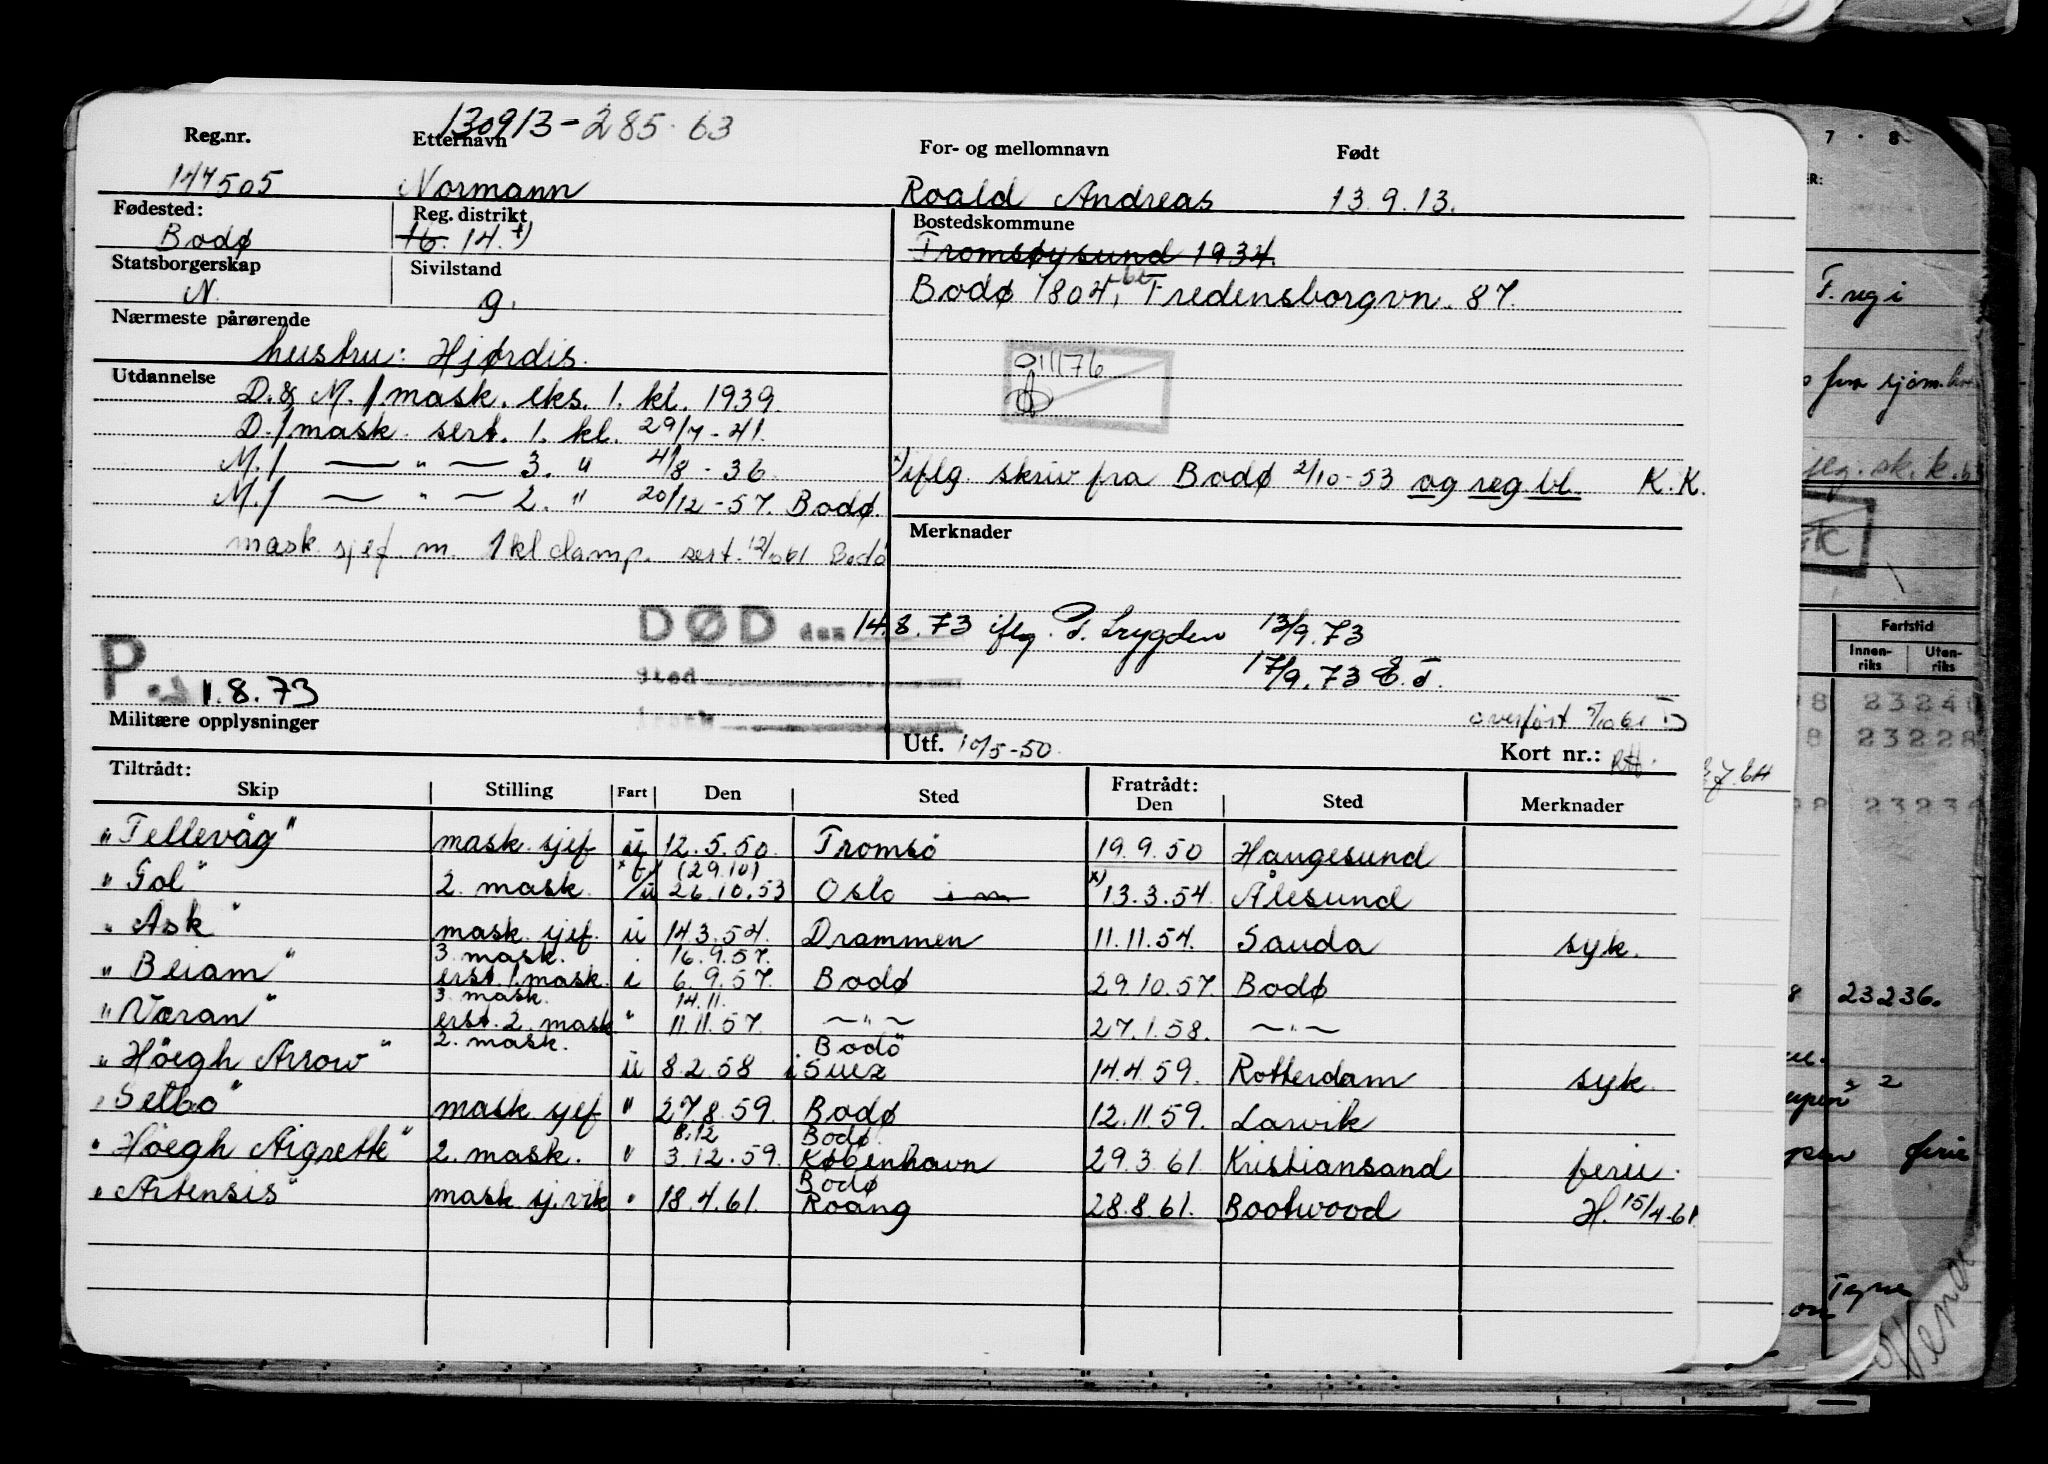 130913-285.63
Reg.nr. Etternavn For- og mellomnavn Født
147505 Normann Roald Andreas 13.9.13.
Fødested: Reg. distrikt Bostedskommune
Bodø 16. 14. x) Tromsøysund 1934.
Statsborgerskap Sivilstand
N. g. Bodø 1804, Fredensborgvn. 87.
Nærmeste pårørende
hustru: Hjørdis.
011176
Utdannelse
D. & M./mask. eks. 1. kl. 1939.
D./mask. sert. 1. kl. 29/7-41.
M./ — " — 3. " 4/8-36
x) iflg. skriv fra Bodø 2/10-53 og reg bl. K.K.
M./ — " — 2. " 20/12-57. Bodø.
Merknader
mask sjef m. 1 kl damp. sert. 12/10 61 Bodø
DØD den 14.8.73 iflg. P. Trygden 13/9.73
sted 17/9.73 E.T.
P. 1.8.73
overført 5/10 61
Militære opplysninger
Utf. 10/5-50. Kort nr.:
Tiltrådt: Fratrådt:
Skip Stilling Fart Den Sted Den Sted Merknader
"Tellevåg" mask. sjef u 12.5.50. Tromsö 19.9.50 Haugesund
(29.10)
"Gol" 2. mask. x) /u 26.10.53 Oslo x) 13.3.54. Ålesund
"Ask" mask. sjef. u 14.3.54. Drammen 11.11.54. Sauda syk.
3. mask. 16.9.57.
"Beiarn" erst. 1. mask. i 6.9.57. Bodø 29.10.57. Bodø
3. mask. 14.11.
"Væran" erst. 2. mask " 11.11.57. — " — 27.1.58. — " —
2. mask. Bodö
"Höegh Arrow" u 8.2.58 i Suez 14.4.59. Rotterdam syk.
"Selbo" mask. sjef " 27.8.59. Bodø 12.11.59. Larvik
8.12 Bodø.
"Höegh Aigrette" 2. mask. " 3.12.59. København 29.3.61. Kristiansand ferie.
Bodø
"Artensis" mask sj. vik " 18.4.61. Roang 28.8.61. Bootwood H. 15/4-61.
7 · 8
F. reg i
Fartstid
Innenriks Utenriks
23240
23228
23236.
ferie